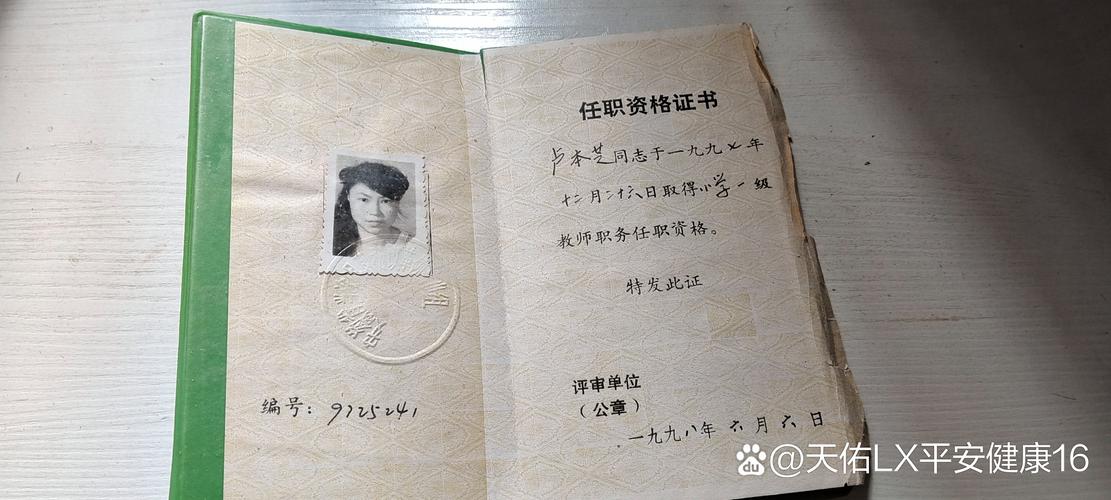 编号：9725241
任职资格证书
卢本芝同志于一九九七年
十二月二十六日取得小学一级
教师职务任职资格。
特发此证
评审单位
（公章）
一九九八年六月六日
@天佑LX平安健康16